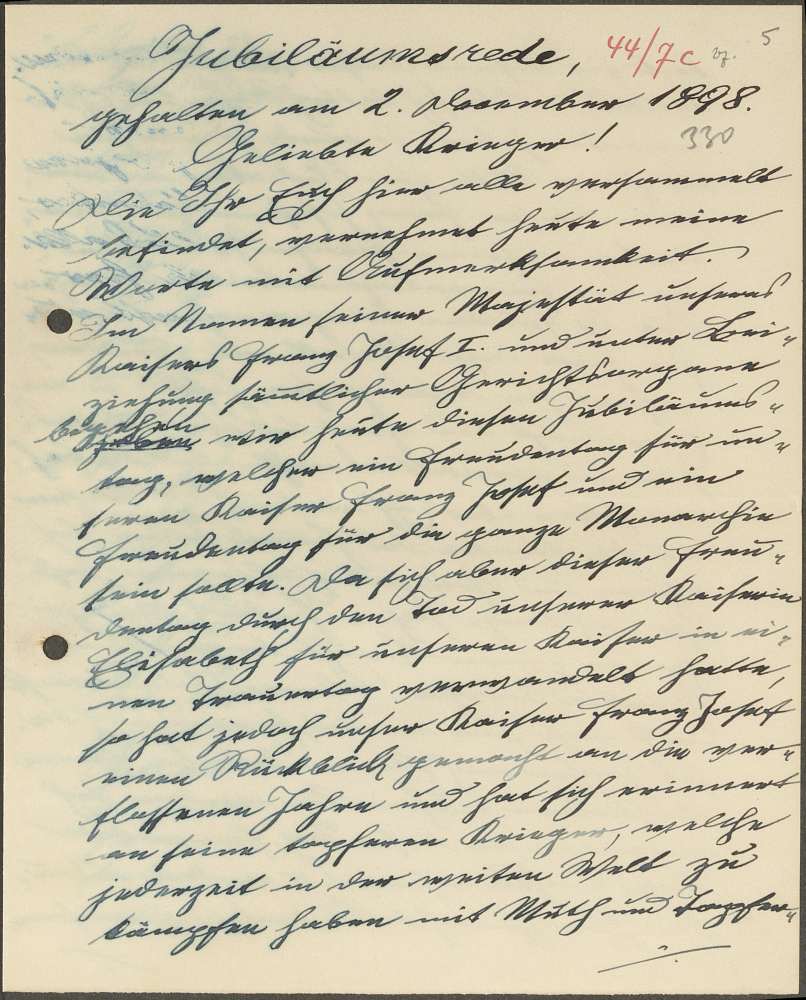 Jubiläumsrede, 44/7c 5
gehalten am 2. Dezember 1898.
Geliebte Krieger! 330
Die Ihr Euch hier alle versammelt
befindet, vernehmet heute meine
Worte mit Aufmerksamkeit.
Im Namen seiner Majestät unseres
Kaisers Franz Josef I. und unter Bei-
ziehung sämtlicher Gerichtsorgane
begehen wir heute diesen Jubiläums-
tag, welcher ein Freudentag für un-
seren Kaiser Franz Josef und ein
Freudentag für die ganze Monarchie
sein sollte. Da sich aber dieser Freu-
dentag durch den Tod unserer Kaiserin
Elisabeth für unseren Kaiser in ei-
nen Trauertag verwandelt hatte,
so hat jedoch unser Kaiser Franz Josef
einen Rückblick gemacht an die ver-
flossenen Jahre und hat sich erinnert
an seine tapferen Krieger, welche
jederzeit in der weiten Welt zu
kämpfen haben mit Muth und Tapfer-